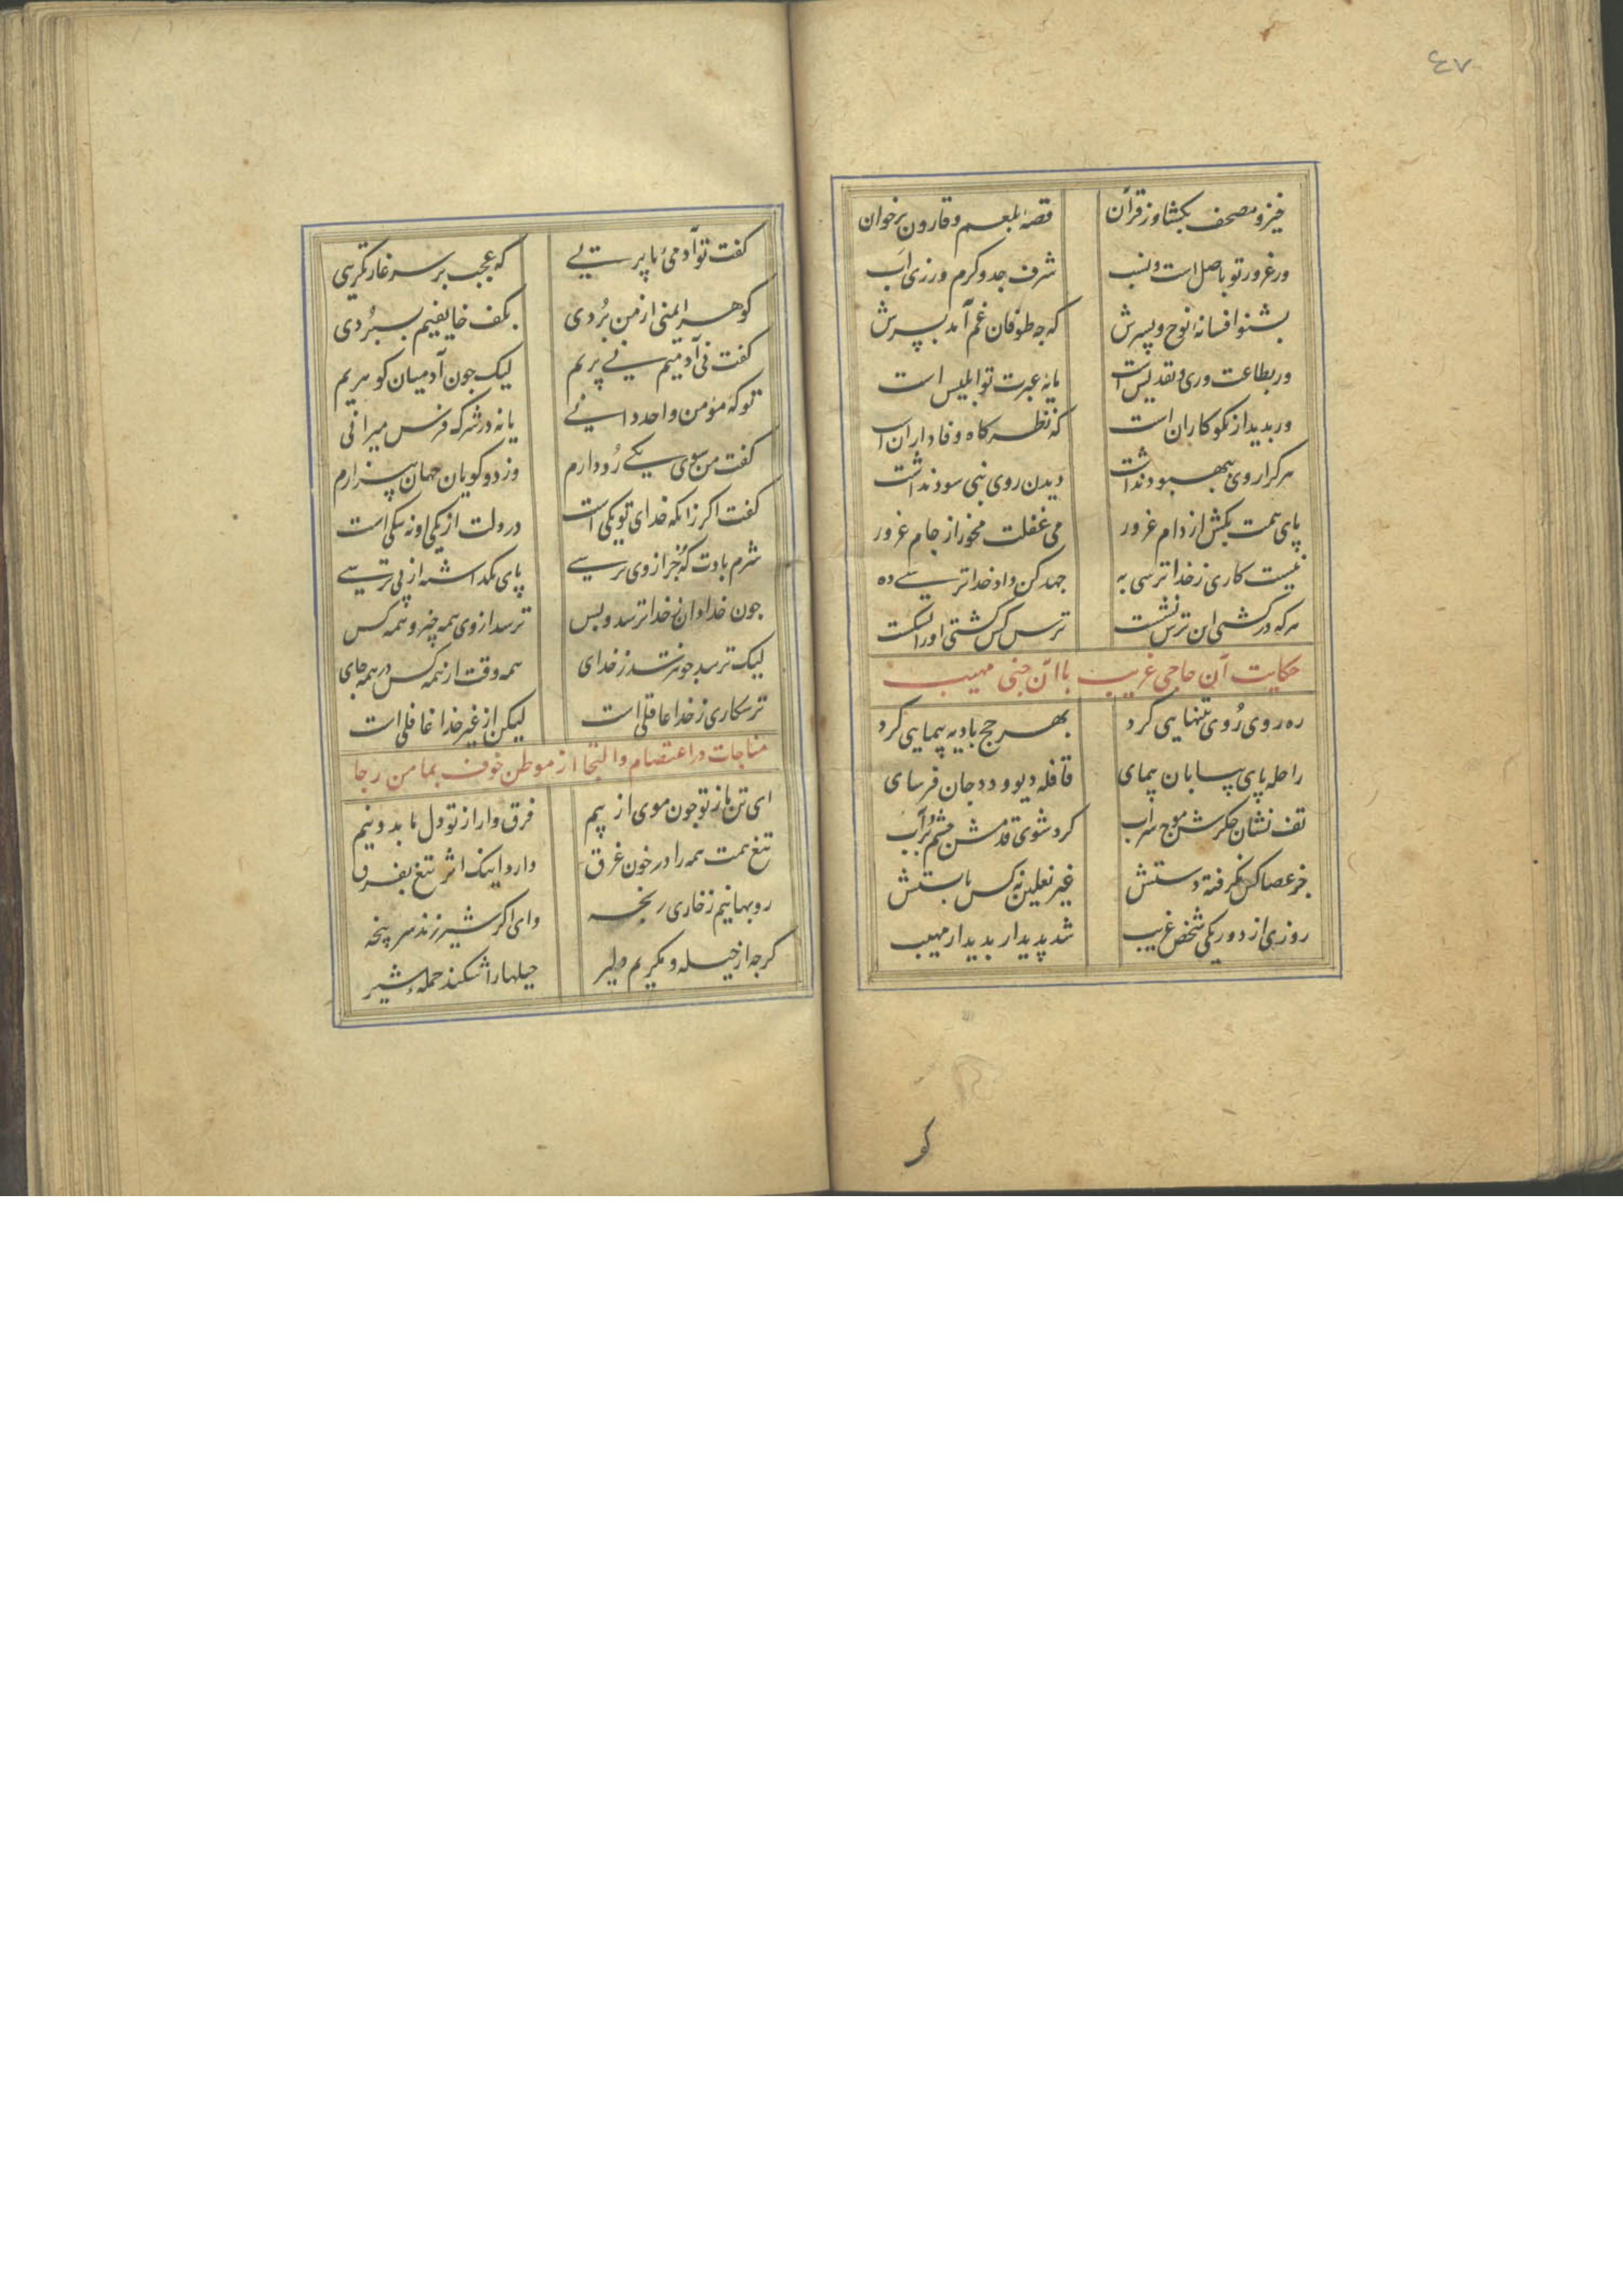 ٤٧
خیز و مصحف بکشا وز قرآن قصهٔ بلعم و قارون برخوان
ور غرور تو باصل است و نسب شرف جد و کرم ورزی اب
بشنو افسانهٔ نوح و پسرش که جه طوفان غم آمد بسرش
ور بطاعت وری و تقدیس است مایهٔ عبرت تو ابلیس است
ور بدیدار نکوکاران است که نظرکاه وفاداران است
هر کرا روی ببهبود نداشت دیدن روی نبی سود نداشت
پای همت بکش از دام غرور می غفلت مخور از جام غرور
نیست کاری ز خدا ترسی به جهد کن داد خدا ترسی ده
هر که در کشتی این ترس نشست ترس کس کشتی او را نشکست
حکایت آن حاجی غریب با آن جنی مهیب
ره روی روی بتنهایی کرد بهر حج بادیه پیمایی کرد
راحله پای بیابان پیمای قافله دیو و دد جان فرسای
تف نشان جکرش موج سراب کرد شوی قدمش جشم پر آب
جز عصا کس نکرفته دستش غیر نعلین نه کس پابستش
روزی از دور یکی شخص غریب شد پدیدار بدیدار مهیب
کو
کفت تو آدمی‌ٔ یا پریی که عجب بر سر غارتکریی
کوهر ایمنی از من بردی بکف خایفیم بسپردی
کفت نی آدمیم نی پریم لیک جون آدمیان کوهریم
تو که مؤمن واحد دانیی یا نه در شرک فرس میرانی
کفت من سوی یکی رو دارم وز دو کویان جهان بیزارم
کفت اکر زانکه خدای تو یکی است در دلت از یکی او نه شکی است
شرم بادت که جز از وی ترسی پای نکداشته از پی ترسی
جون خدادان ز خدا ترسد و بس ترسد از وی همه چیز و همه کس
لیک ترسد جو نترسد ز خدای همه وقت از همه کس در همه جای
ترسکاری ز خدا عاقلی است لیکن از غیر خدا غافلی است
مناجات در اعتصام و التجا از موطن خوف بمامن رجا
ای تن ما ز تو جون موی از بیم فرق وار از تو دل ما بدو نیم
تیغ همت همه را در خون غرق دارد اینک اثر تیغ بفرق
روبهانیم ز خاری رنجه وای اکر شیر زند سر پنجه
کرجه از حیله و مکریم دلیر حیلها را شکند حملهٔ شیر